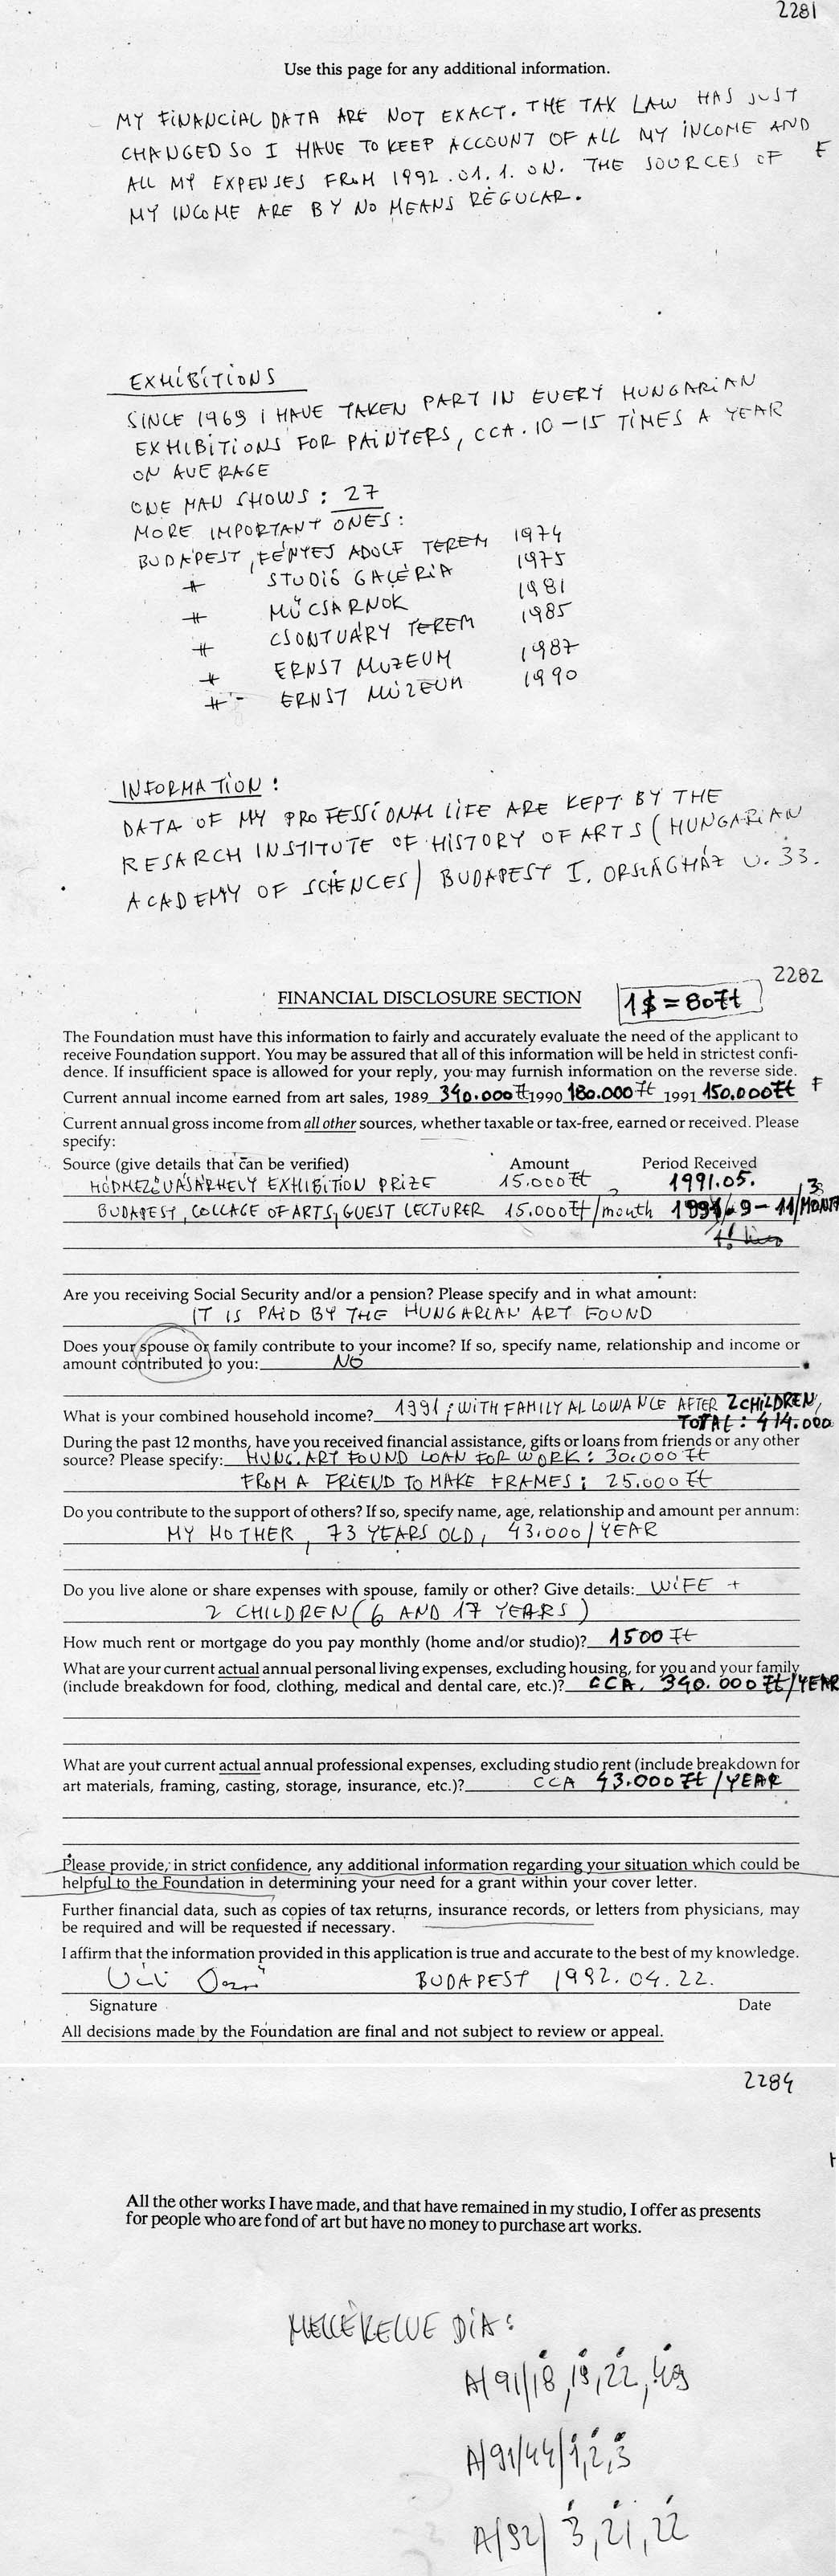 2281
Use this page for any additional information.
MY FINANCIAL DATA ARE NOT EXACT. THE TAX LAW HAS JUST
CHANGED SO I HAVE TO KEEP ACCOUNT OF ALL MY INCOME AND
ALL MY EXPENSES FROM 1992.01.1. ON. THE SOURCES OF
MY INCOME ARE BY NO MEANS REGULAR.
EXHIBITIONS
SINCE 1969 I HAVE TAKEN PART IN EVERY HUNGARIAN
EXHIBITIONS FOR PAINTERS, CCA. 10-15 TIMES A YEAR
ON AVERAGE
ONE MAN SHOWS: 27
MORE IMPORTANT ONES:
BUDAPEST, FÉNYES ADOLF TEREM 1974
STUDIÓ GALÉRIA 1975
MŰCSARNOK 1981
CSONTVÁRY TEREM 1985
ERNST MUZEUM 1987
ERNST MÚZEUM 1990
INFORMATION:
DATA OF MY PROFESSIONAL LIFE ARE KEPT BY THE
RESARCH INSTITUTE OF HISTORY OF ARTS (HUNGARIAN
ACADEMY OF SCIENCES) BUDAPEST I. ORSZÁGHÁZ U. 33.
2282
FINANCIAL DISCLOSURE SECTION 1$=80Ft
The Foundation must have this information to fairly and accurately evaluate the need of the applicant to
receive Foundation support. You may be assured that all of this information will be held in strictest confi-
dence. If insufficient space is allowed for your reply, you may furnish information on the reverse side.
Current annual income earned from art sales, 1989 340.000 Ft 1990 180.000 Ft 1991 150.000 Ft F
Current annual gross income from all other sources, whether taxable or tax-free, earned or received. Please
specify:
Source (give details that can be verified) Amount Period Received
HÓDMEZŐVÁSÁRHELY EXHIBITION PRIZE 15.000 Ft 1991.05.
BUDAPEST, COLLAGE OF ARTS, GUEST LECTURER 15.000 Ft/month 1991.9-11/3 MONTH
Are you receiving Social Security and/or a pension? Please specify and in what amount:
IT IS PAID BY THE HUNGARIAN ART FOUND
Does your spouse or family contribute to your income? If so, specify name, relationship and income or
amount contributed to you: NO
What is your combined household income? 1991; WITH FAMILY ALLOWANCE AFTER 2 CHILDREN,
TOTAL: 414.000
During the past 12 months, have you received financial assistance, gifts or loans from friends or any other
source? Please specify: HUNG. ART FOUND LOAN FOR WORK: 30.000 Ft
FROM A FRIEND TO MAKE FRAMES: 25.000 Ft
Do you contribute to the support of others? If so, specify name, age, relationship and amount per annum:
MY MOTHER, 73 YEARS OLD, 43.000/YEAR
Do you live alone or share expenses with spouse, family or other? Give details: WIFE +
2 CHILDREN (6 AND 17 YEARS)
How much rent or mortgage do you pay monthly (home and/or studio)? 1500 Ft
What are your current actual annual personal living expenses, excluding housing, for you and your family
(include breakdown for food, clothing, medical and dental care, etc.)? CCA. 340.000 Ft/YEAR
What are your current actual annual professional expenses, excluding studio rent (include breakdown for
art materials, framing, casting, storage, insurance, etc.)? CCA 43.000 Ft/YEAR
Please provide, in strict confidence, any additional information regarding your situation which could be
helpful to the Foundation in determining your need for a grant within your cover letter.
Further financial data, such as copies of tax returns, insurance records, or letters from physicians, may
be required and will be requested if necessary.
I affirm that the information provided in this application is true and accurate to the best of my knowledge.
BUDAPEST 1992.04.22.
Signature Date
All decisions made by the Foundation are final and not subject to review or appeal.
2284
All the other works I have made, and that have remained in my studio, I offer as presents
for people who are fond of art but have no money to purchase art works.
MELLÉKELVE DIA:
A/91/18, 19, 22, 49
A/91/44/1,2,3
A/92/ 3, 21, 22